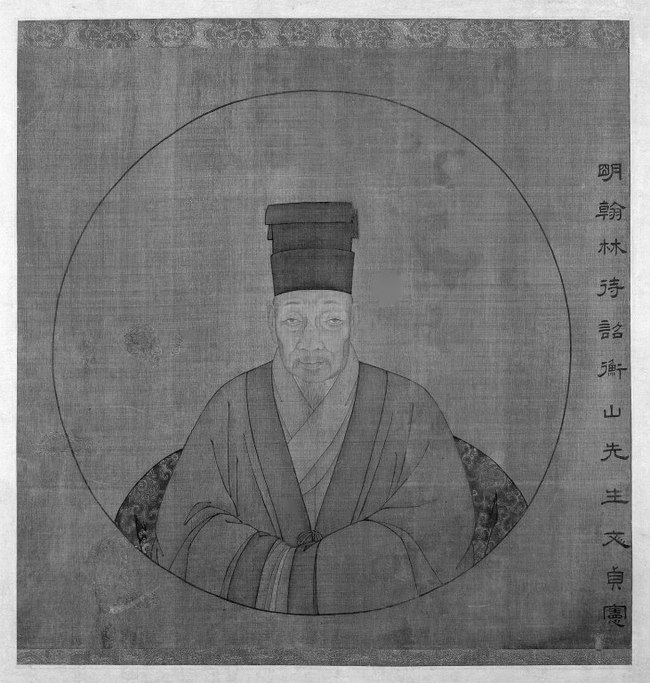 明翰林待詔衡山先生文貞憲